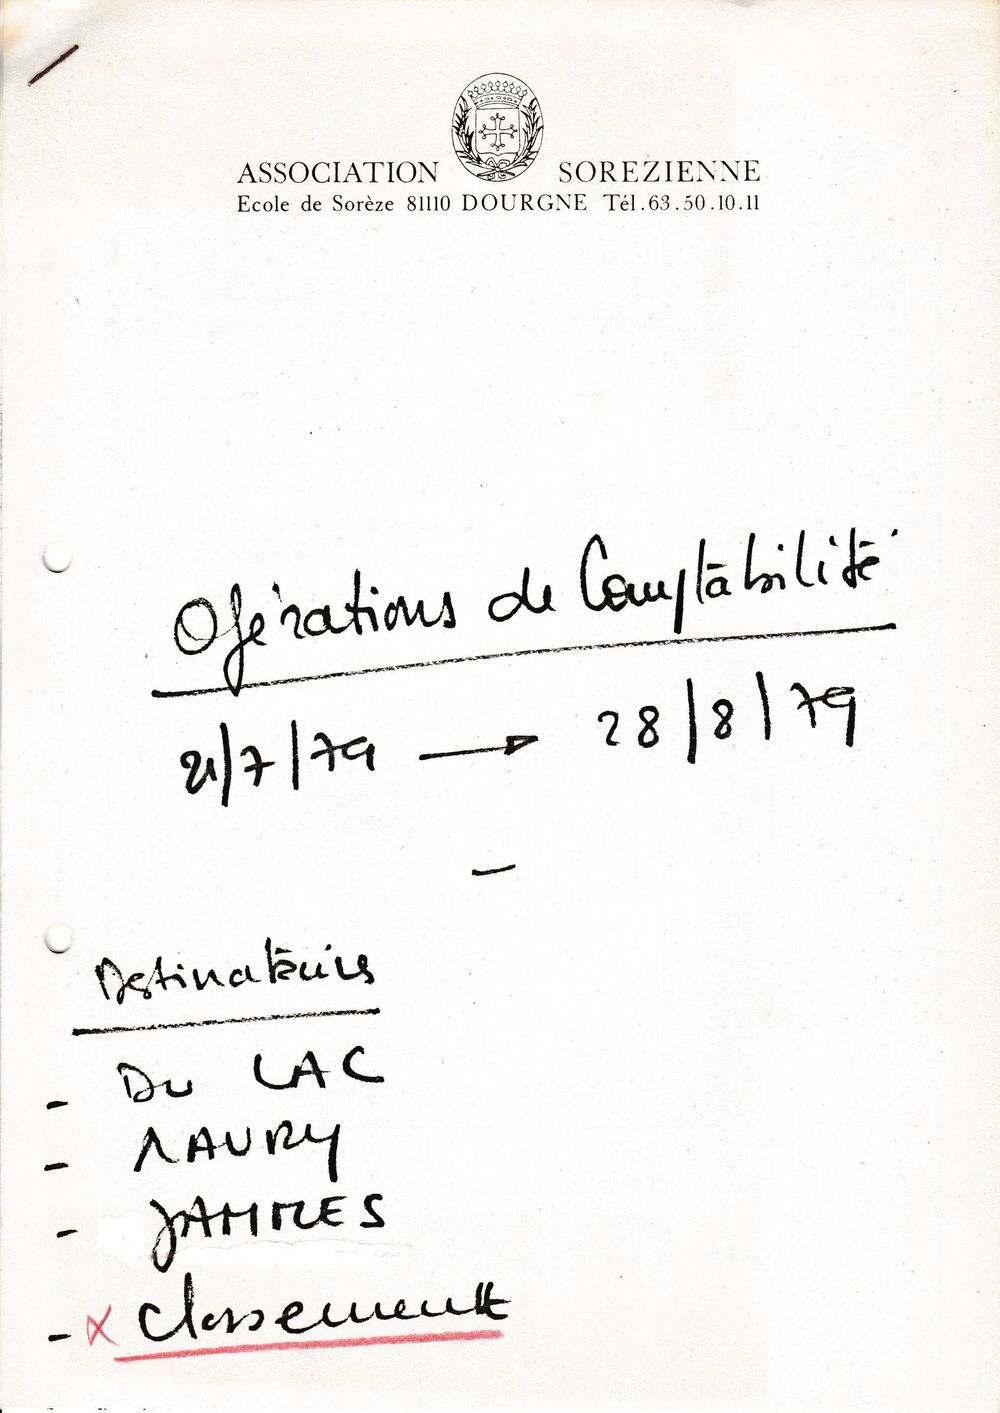 ASSOCIATION SOREZIENNE
Ecole de Sorèze 81110 DOURGNE Tél.63.50.10.11
Opérations de Comptabilité
21/7/79 → 28/8/79
—
Destinataires
- Du LAC
- MAURY
- JAMMES
- x Classement